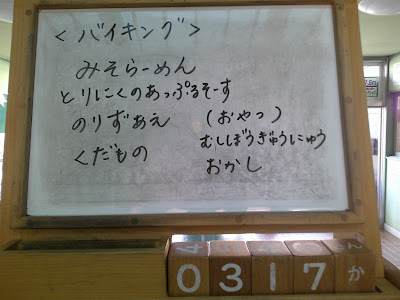 ＜バイキング＞
みそらーめん
とりにくのあっぷるそーす
のりずあえ
くだもの
（おやつ）
むしぼうぎゅうにゅう
おかし
0317か